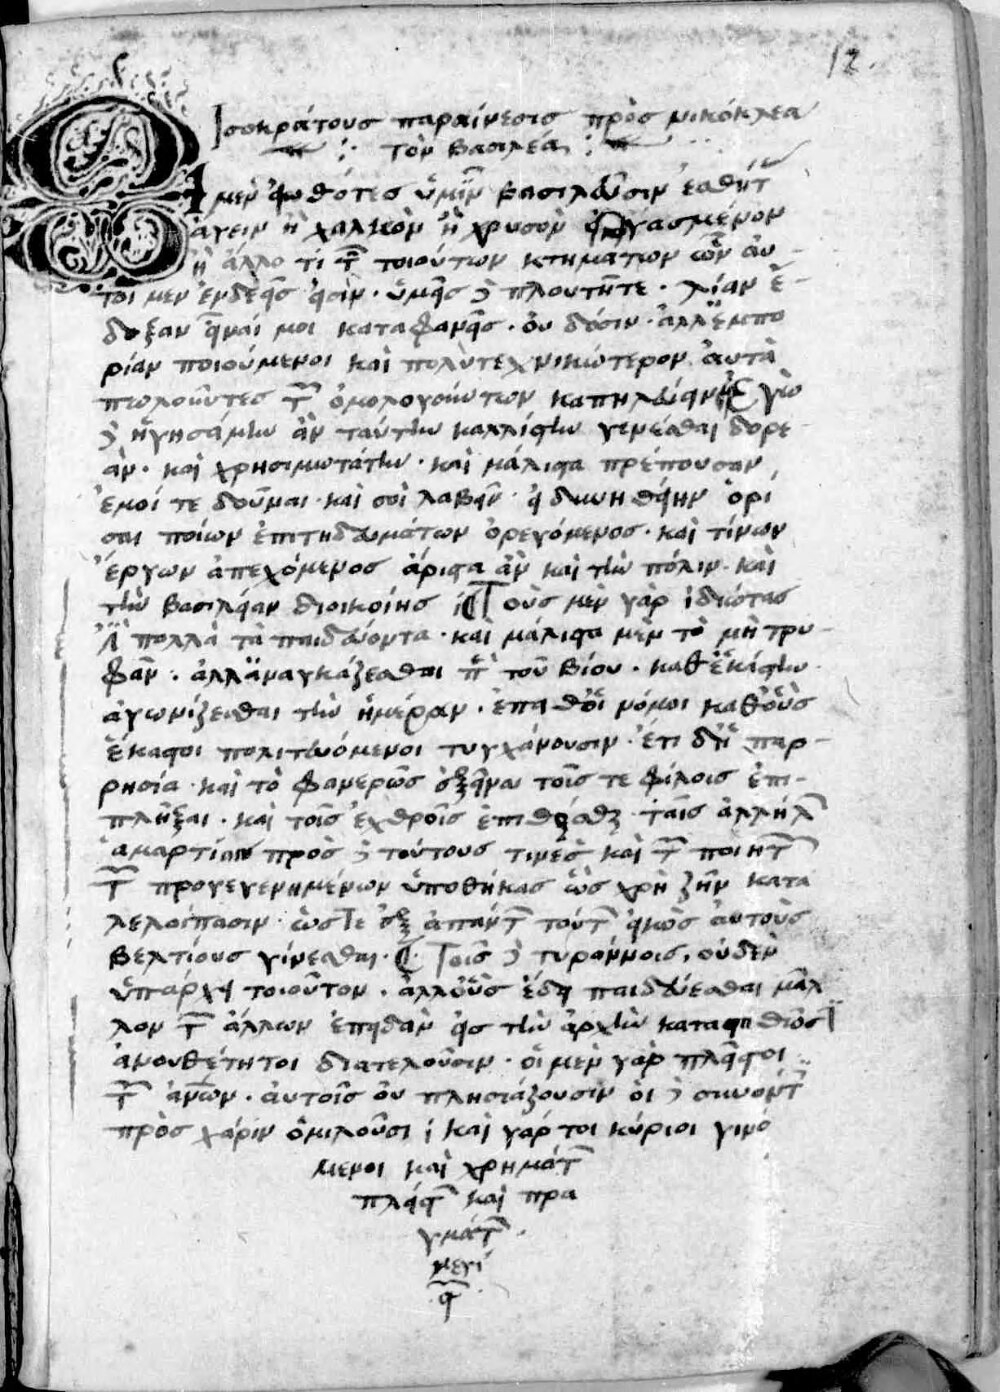 12.
Ἰσοκράτους παραίνεσις πρὸς νικόκλεα
τὸν βασιλέα
Οἱ μὲν εἰωθότες ὑμῖν βασιλεῦσιν ἐσθῆτ
ἄγειν ἢ χαλκὸν ἢ χρυσὸν εἰργασμένον
ἢ ἄλλο τι τῶν τοιούτων κτημάτων ὧν αυ-
τοὶ μὲν ἐνδεεῖς εἰσὶν· ὑμεῖς δὲ πλουτῆτε· λίαν ἔ-
δοξαν εἶναί μοι καταφανεῖς· οὐ δόσιν· ἀλλ' ἐμπο
ρίαν ποιούμενοι καὶ πολὺ τεχνικώτερον αὐτὰ
πωλοῦντες τῶν ὁμολογούντων καπηλεύειν· Ἐγὼ
δὲ ἡγησάμην ἂν ταύτην καλλίστην γενέσθαι δορε-
άν· καὶ χρησιμωτάτην· καὶ μάλιστα πρέπουσαν
ἐμοί τε δοῦναι· καὶ σοὶ λαβεῖν· εἰ δυνηθείην ὁρί
σαι ποίων ἐπιτηδευμάτων ὀρεγόμενος· καὶ τίνων
ἔργων ἀπεχόμενος ἄριστα ἂν καὶ τὴν πόλιν· καὶ
τὴν βασιλείαν διοικοίης· Τοὺς μὲν γὰρ ἰδιώτας
ἐστὶ πολλὰ τὰ παιδεύοντα· καὶ μάλιστα μὲν τὸ μὴ τρυ-
φᾶν· ἀλλ' ἀναγκάζεσθαι περὶ τοῦ βίου· καθ' ἑκάστην
ἀγωνίζεσθαι τὴν ἡμέραν· ἔπειθ' οἱ νόμοι καθ' οὓς
ἕκαστοι πολιτευόμενοι τυγχάνουσιν· ἔτι δ' ἡ παρ-
ρησία· καὶ τὸ φανερῶς ἐξεῖναι τοῖς τε φίλοις ἐπι-
πλῆξαι· καὶ τοῖς ἐχθροῖς ἐπιθέσθαι· ταῖς ἀλλήλων
ἁμαρτίαις πρὸς δὲ τούτοις τινὲς καὶ τῶν ποιητῶν
τῶν προγεγενημένων ὑποθήκας ὡς χρὴ ζῆν κατα
λελοίπασιν· ὥστε ἐξ ἁπάντων τούτων εἰκὸς αὐτοὺς
βελτίους γίνεσθαι· Τοῖς δὲ τυράννοις, οὐδὲν
ὑπάρχει τοιοῦτον· ἀλλ' οὓς ἔδει παιδεύεσθαι μᾶλ
λον τῶν ἄλλων ἐπειδὰν εἰς τὴν ἀρχὴν καταστῶσιν
ἀνουθέτητοι διατελοῦσιν· οἱ μὲν γὰρ πλεῖστοι
τῶν ἀνθρώπων· αὐτοῖς οὐ πλησιάζουσιν οἱ δὲ συνόντες
πρὸς χάριν ὁμιλοῦσι· καὶ γάρ τοι κύριοι γινό
μενοι καὶ χρημάτων
πλείστων καὶ πρα
γμάτων
μεγί
στων